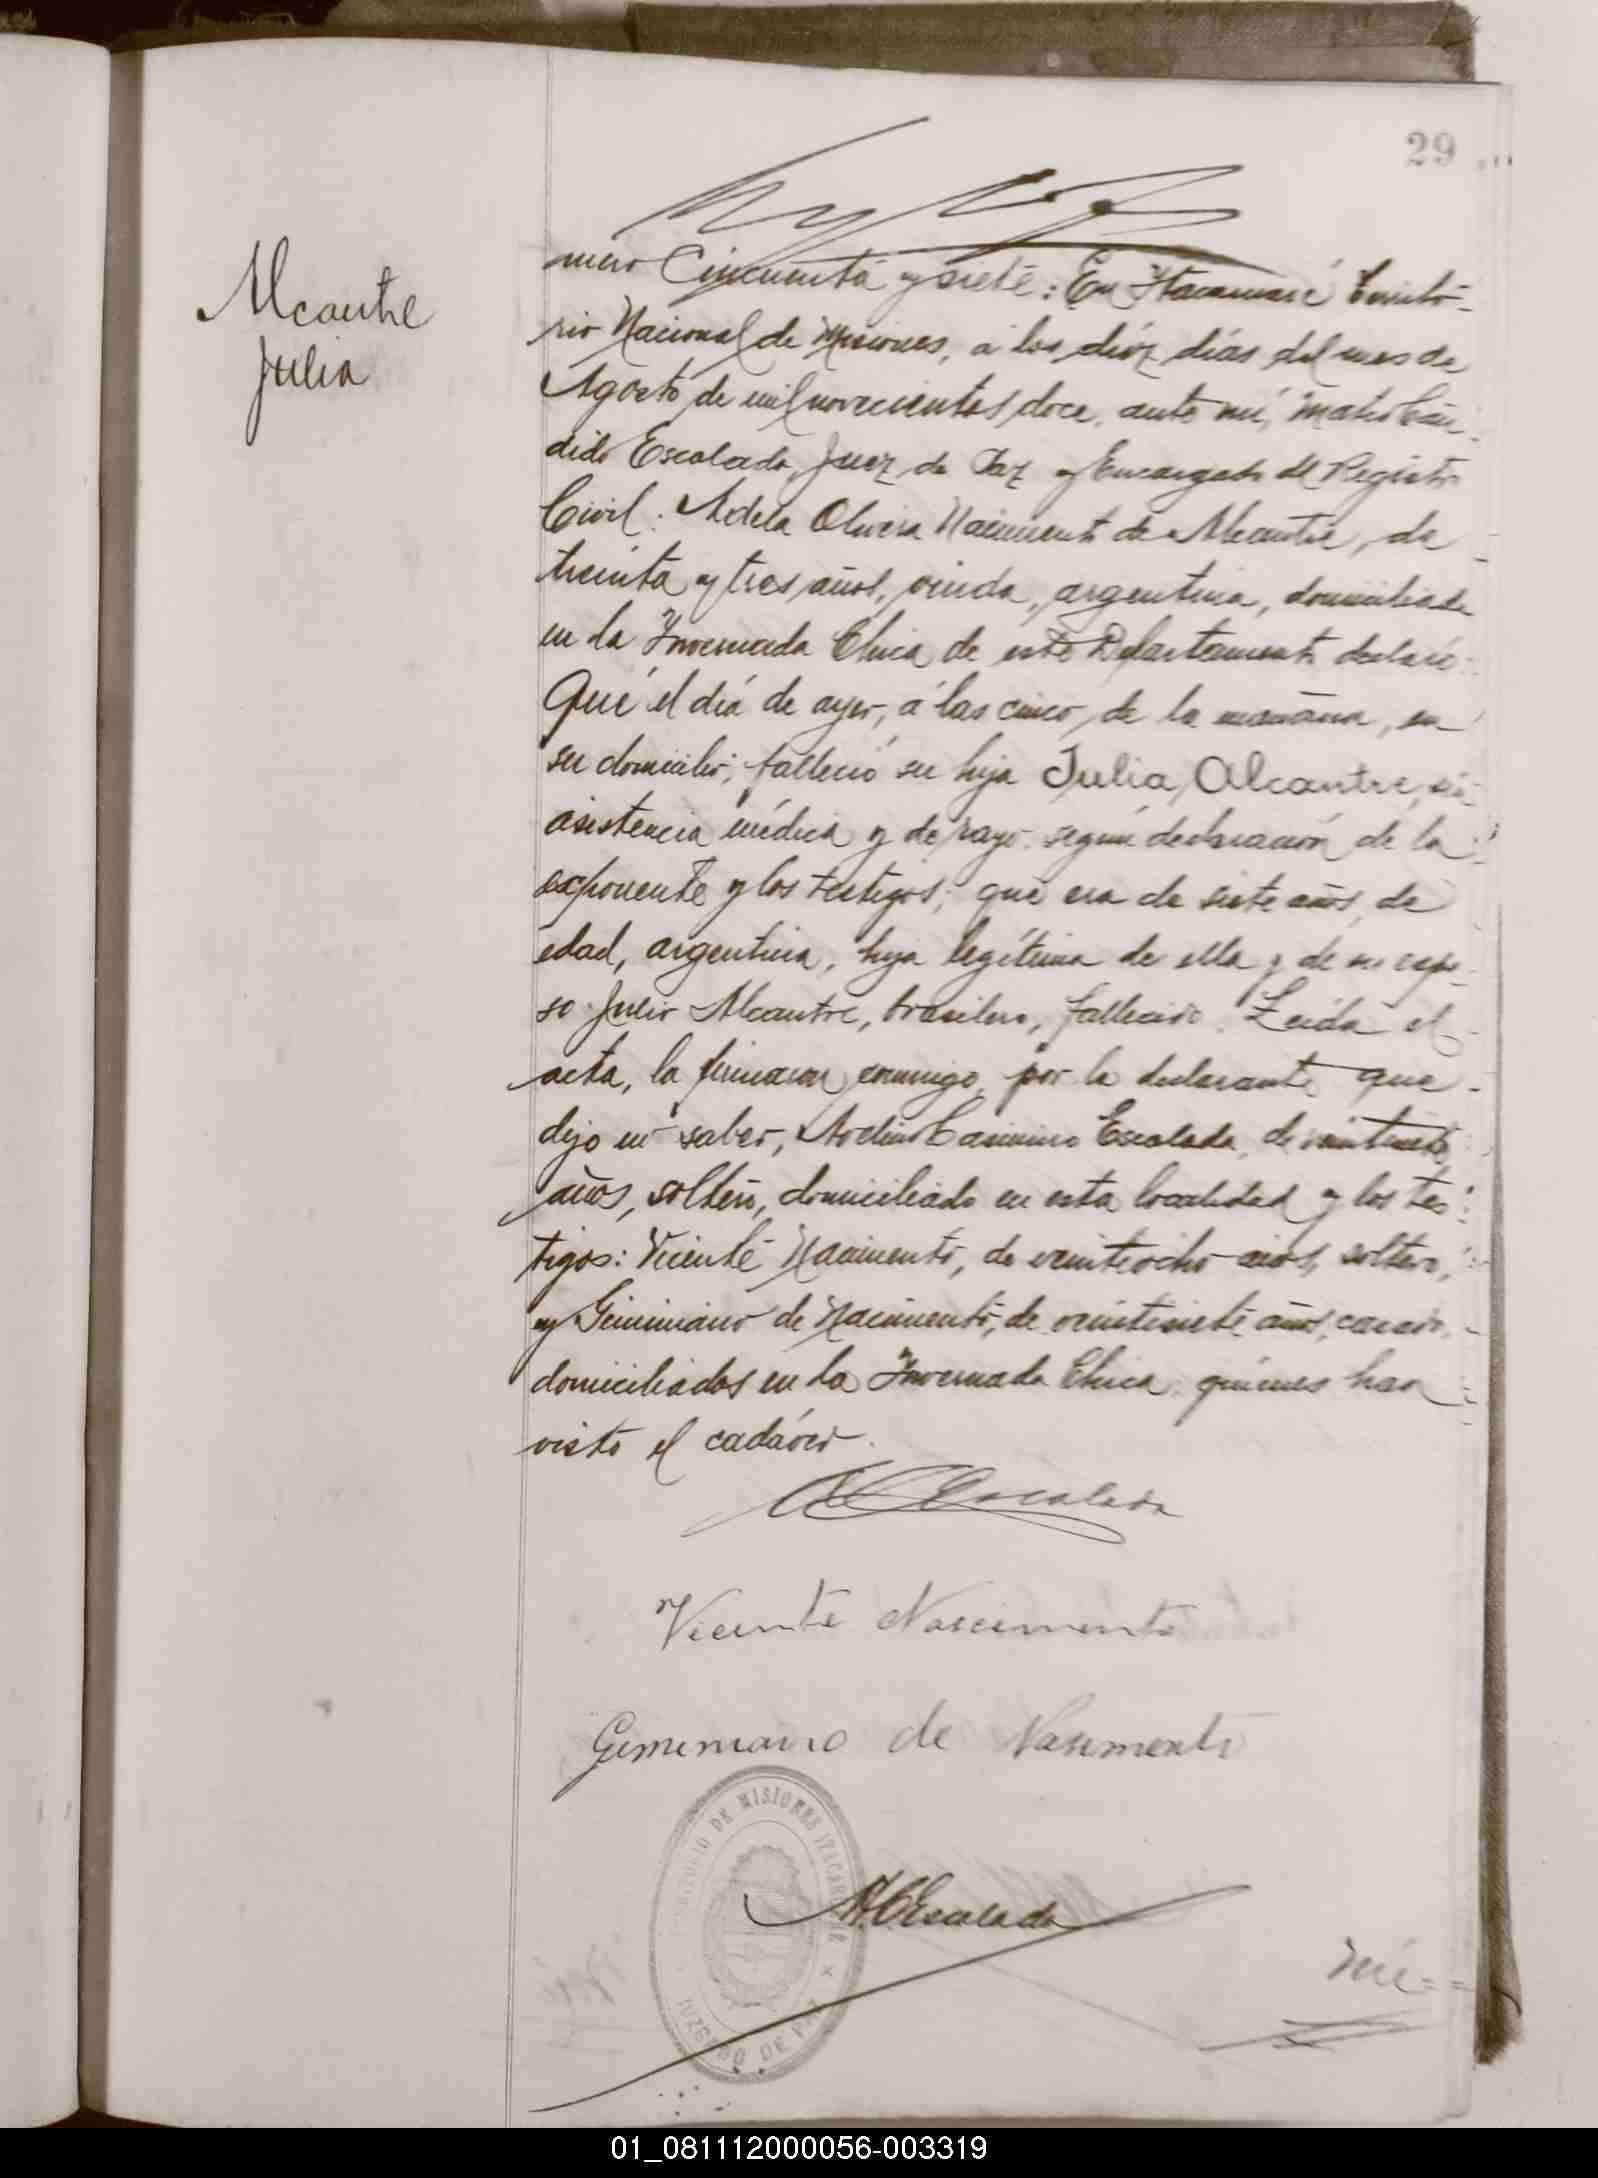 29
Alcantre
Julia
mero Cincuenta y siete: En Itacaruaré Territó-
rio Nacional de Misiones, á los diéz días del mes de
Agosto de mil novecientos doce, ante mí, Mateo Cán-
dido Escalada, Juez de Paz y Encargado del Registro
Civil: Adela Olivera Nacimento de Alcantre, de
treinta y tres años, viuda, argentina, domiciliada
en la Invernada Chica de este Departamento declaró:
Que el día de ayer, á las cinco de la mañana, en
su domicilio, falleció su hija Julia Alcantre, sin
asistencia médica y de rayo, según declaración de la
exponente y los testigos; que era de siete años de
edad, argentina, hija legítima de ella y de su espo-
so Julio Alcantre, brasilero, fallecido. Leída el
acta, la firmaron conmigo, por la declarante que
dijo no saber, Casimiro Escalada, de veintisiete
años, soltero, domiciliado en esta localidad y los tes-
tigos: Vicente Nacimento, de veintiocho años, soltero,
y Giminiano de Nacimento, de veintisiete años, casado,
domiciliados en la Invernada Chica, quienes han
visto el cadáver.
Escalada
Vicente Nascimento
Gememiano de Nasimento
TERRITORIO DE MISIONES
JUZGADO DE PAZ
M.C.Escalada
Nú-
01_081112000056-003319